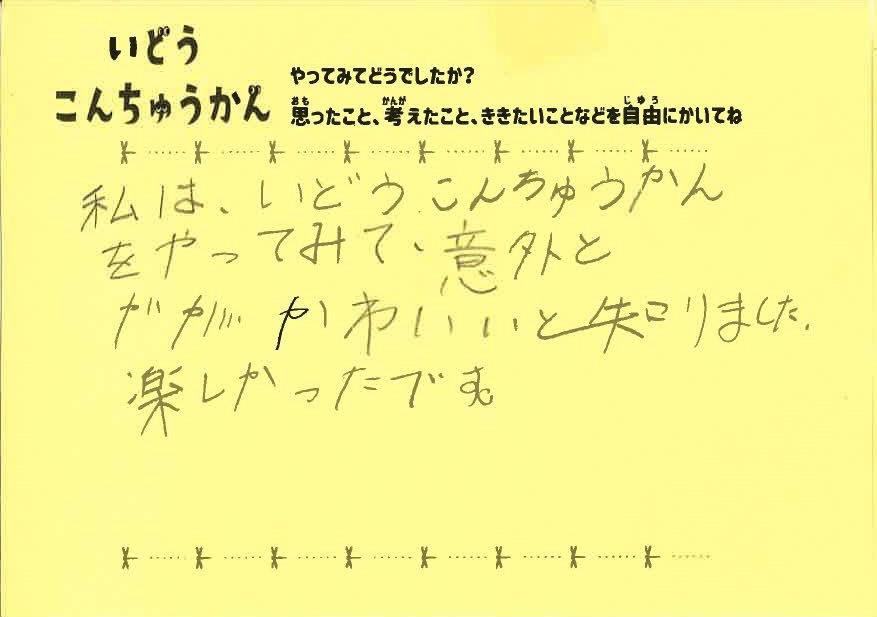 いどう
こんちゅうかん
やってみてどうでしたか?
おも かんが じゆう
思ったこと、考えたこと、ききたいことなどを自由にかいてね
私は、いどうこんちゅうかん
をやってみて、意外と
ガがかわいいと知りました。
楽しかったです。